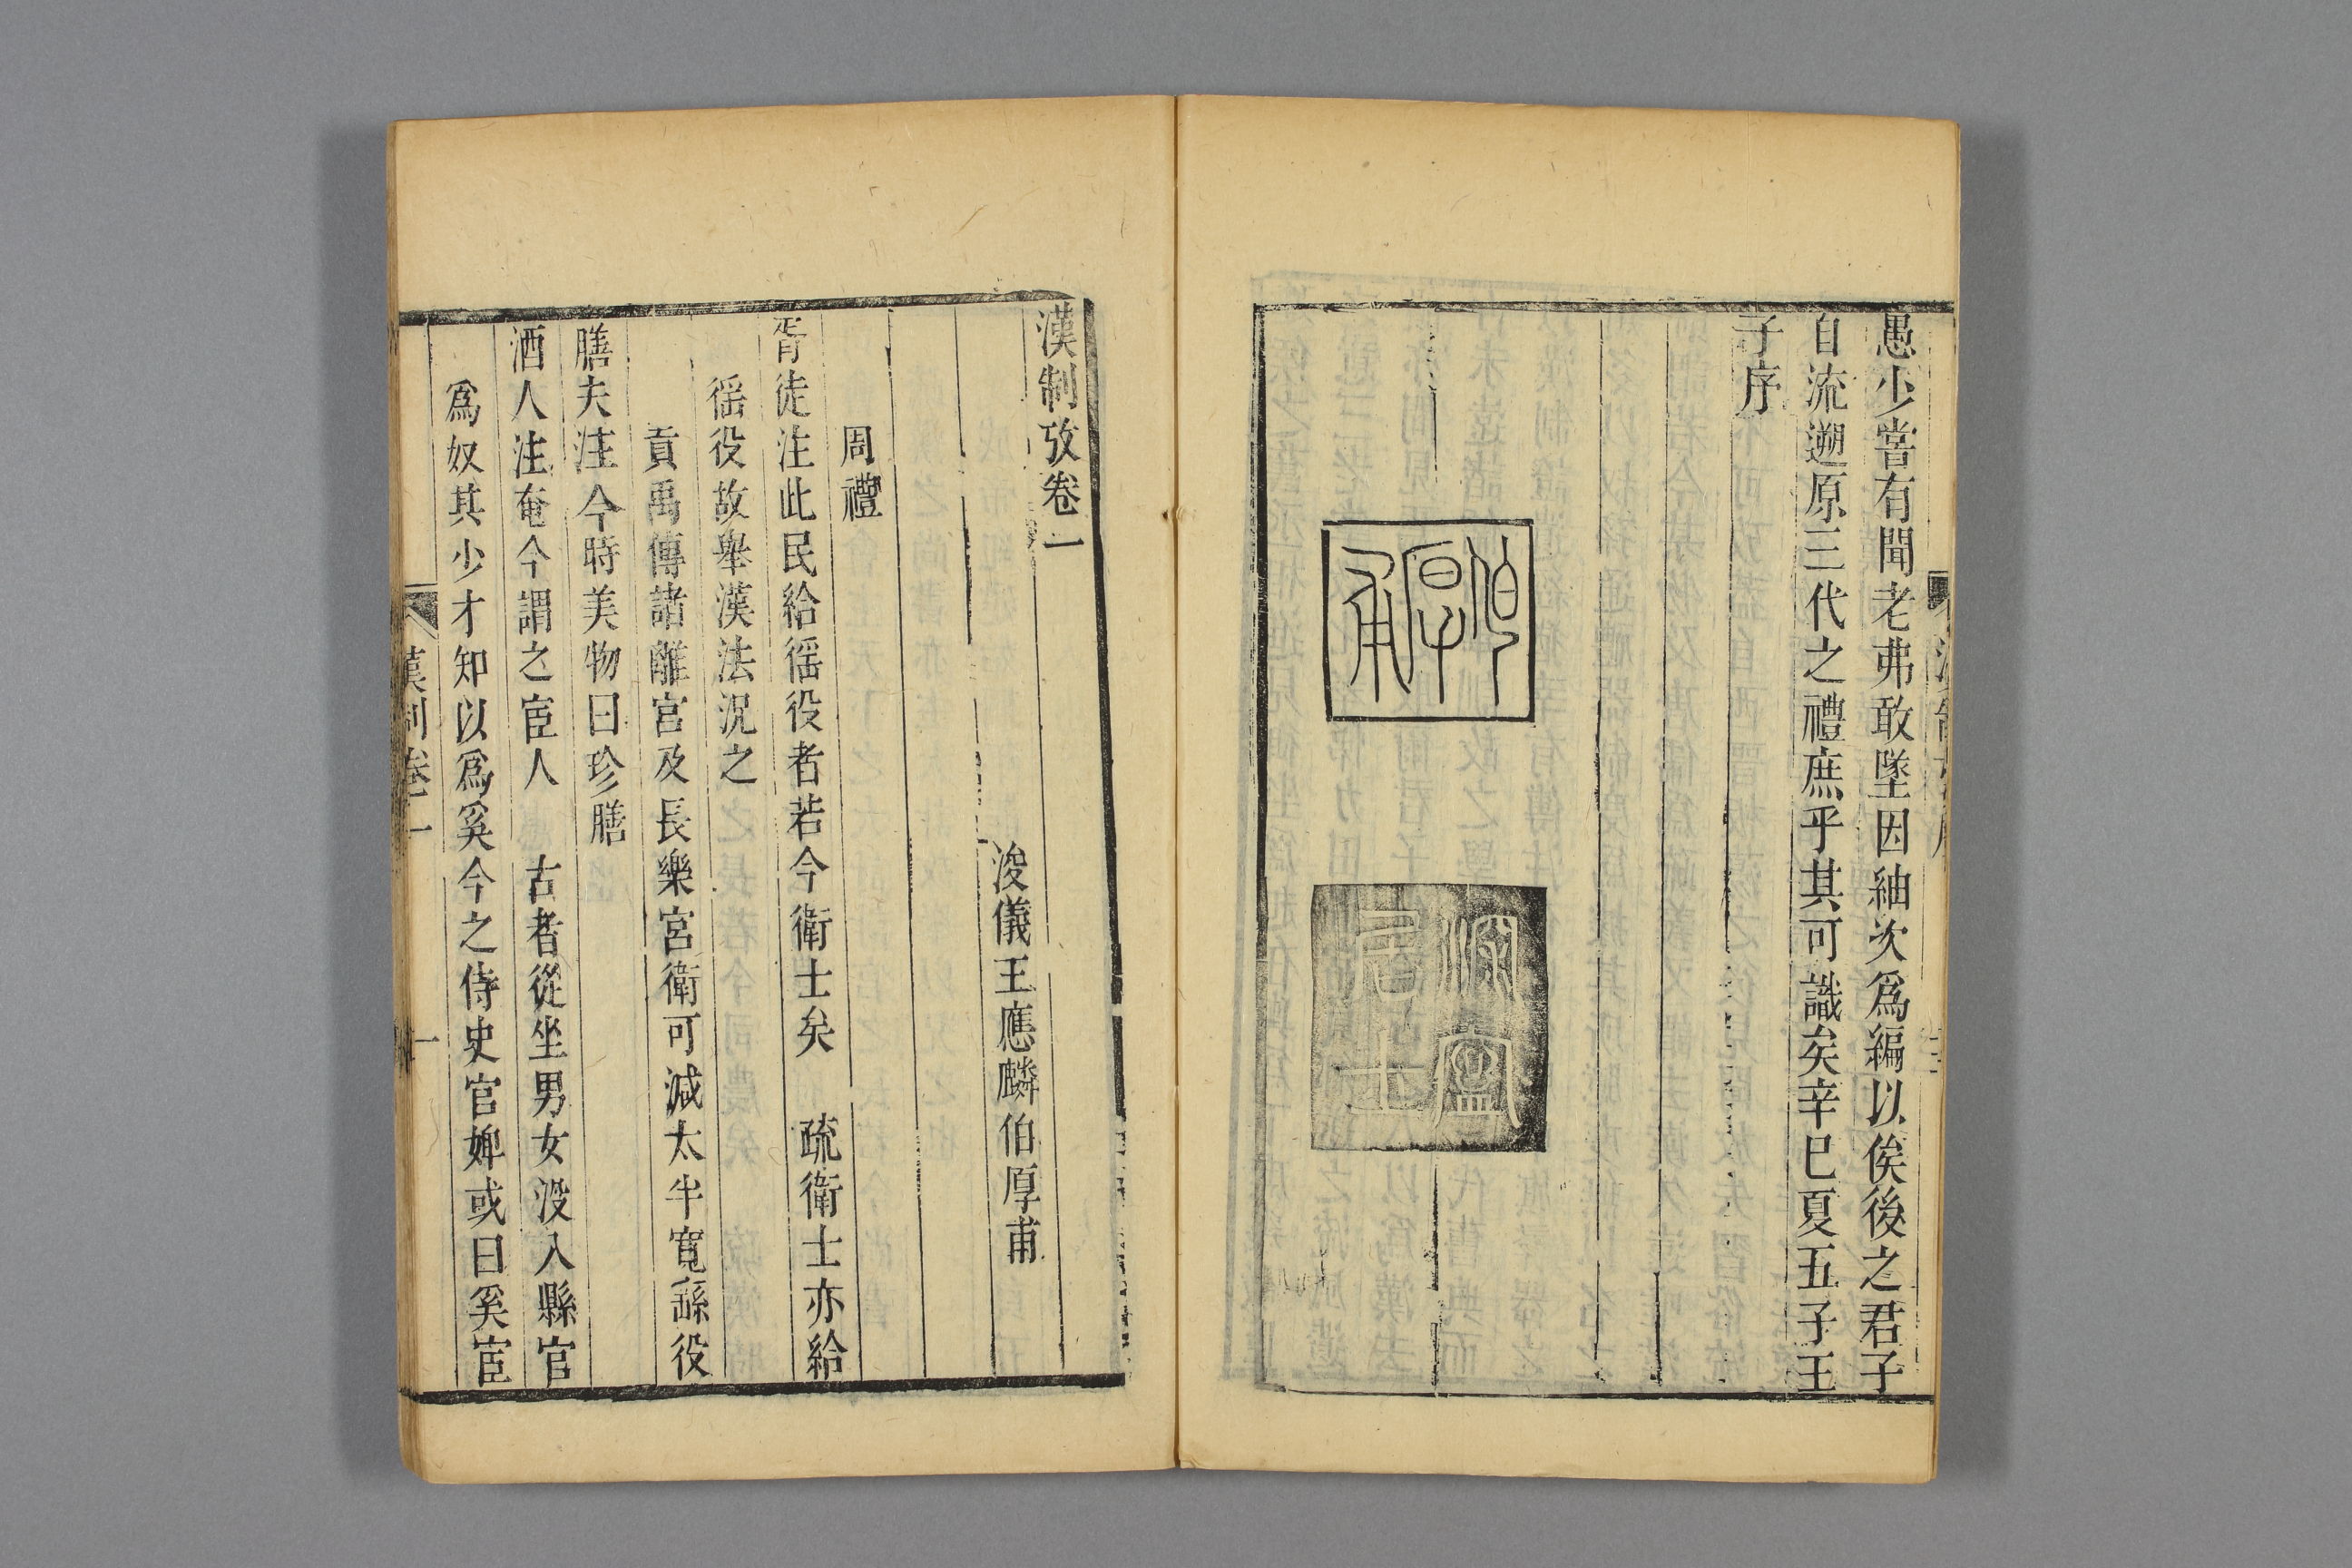 愚少嘗有聞老弗敢墜因紬次爲編以俟後之君子
自流遡原三代之禮庶乎其可識矣辛巳夏五子王
子序
伯厚甫
深寧居士
漢制攷卷一
浚儀王應麟伯厚甫
周禮
胥徒注此民給徭役者若今衛士矣 疏衛士亦給
徭役故舉漢法況之
貢禹傳諸離宮及長樂宮衛可減太半寬繇役
膳夫注今時美物曰珍膳
酒人注奄今謂之宦人 古者從坐男女没入縣官
爲奴其少才知以爲奚今之侍史官婢或曰奚宦
漢制卷一
一